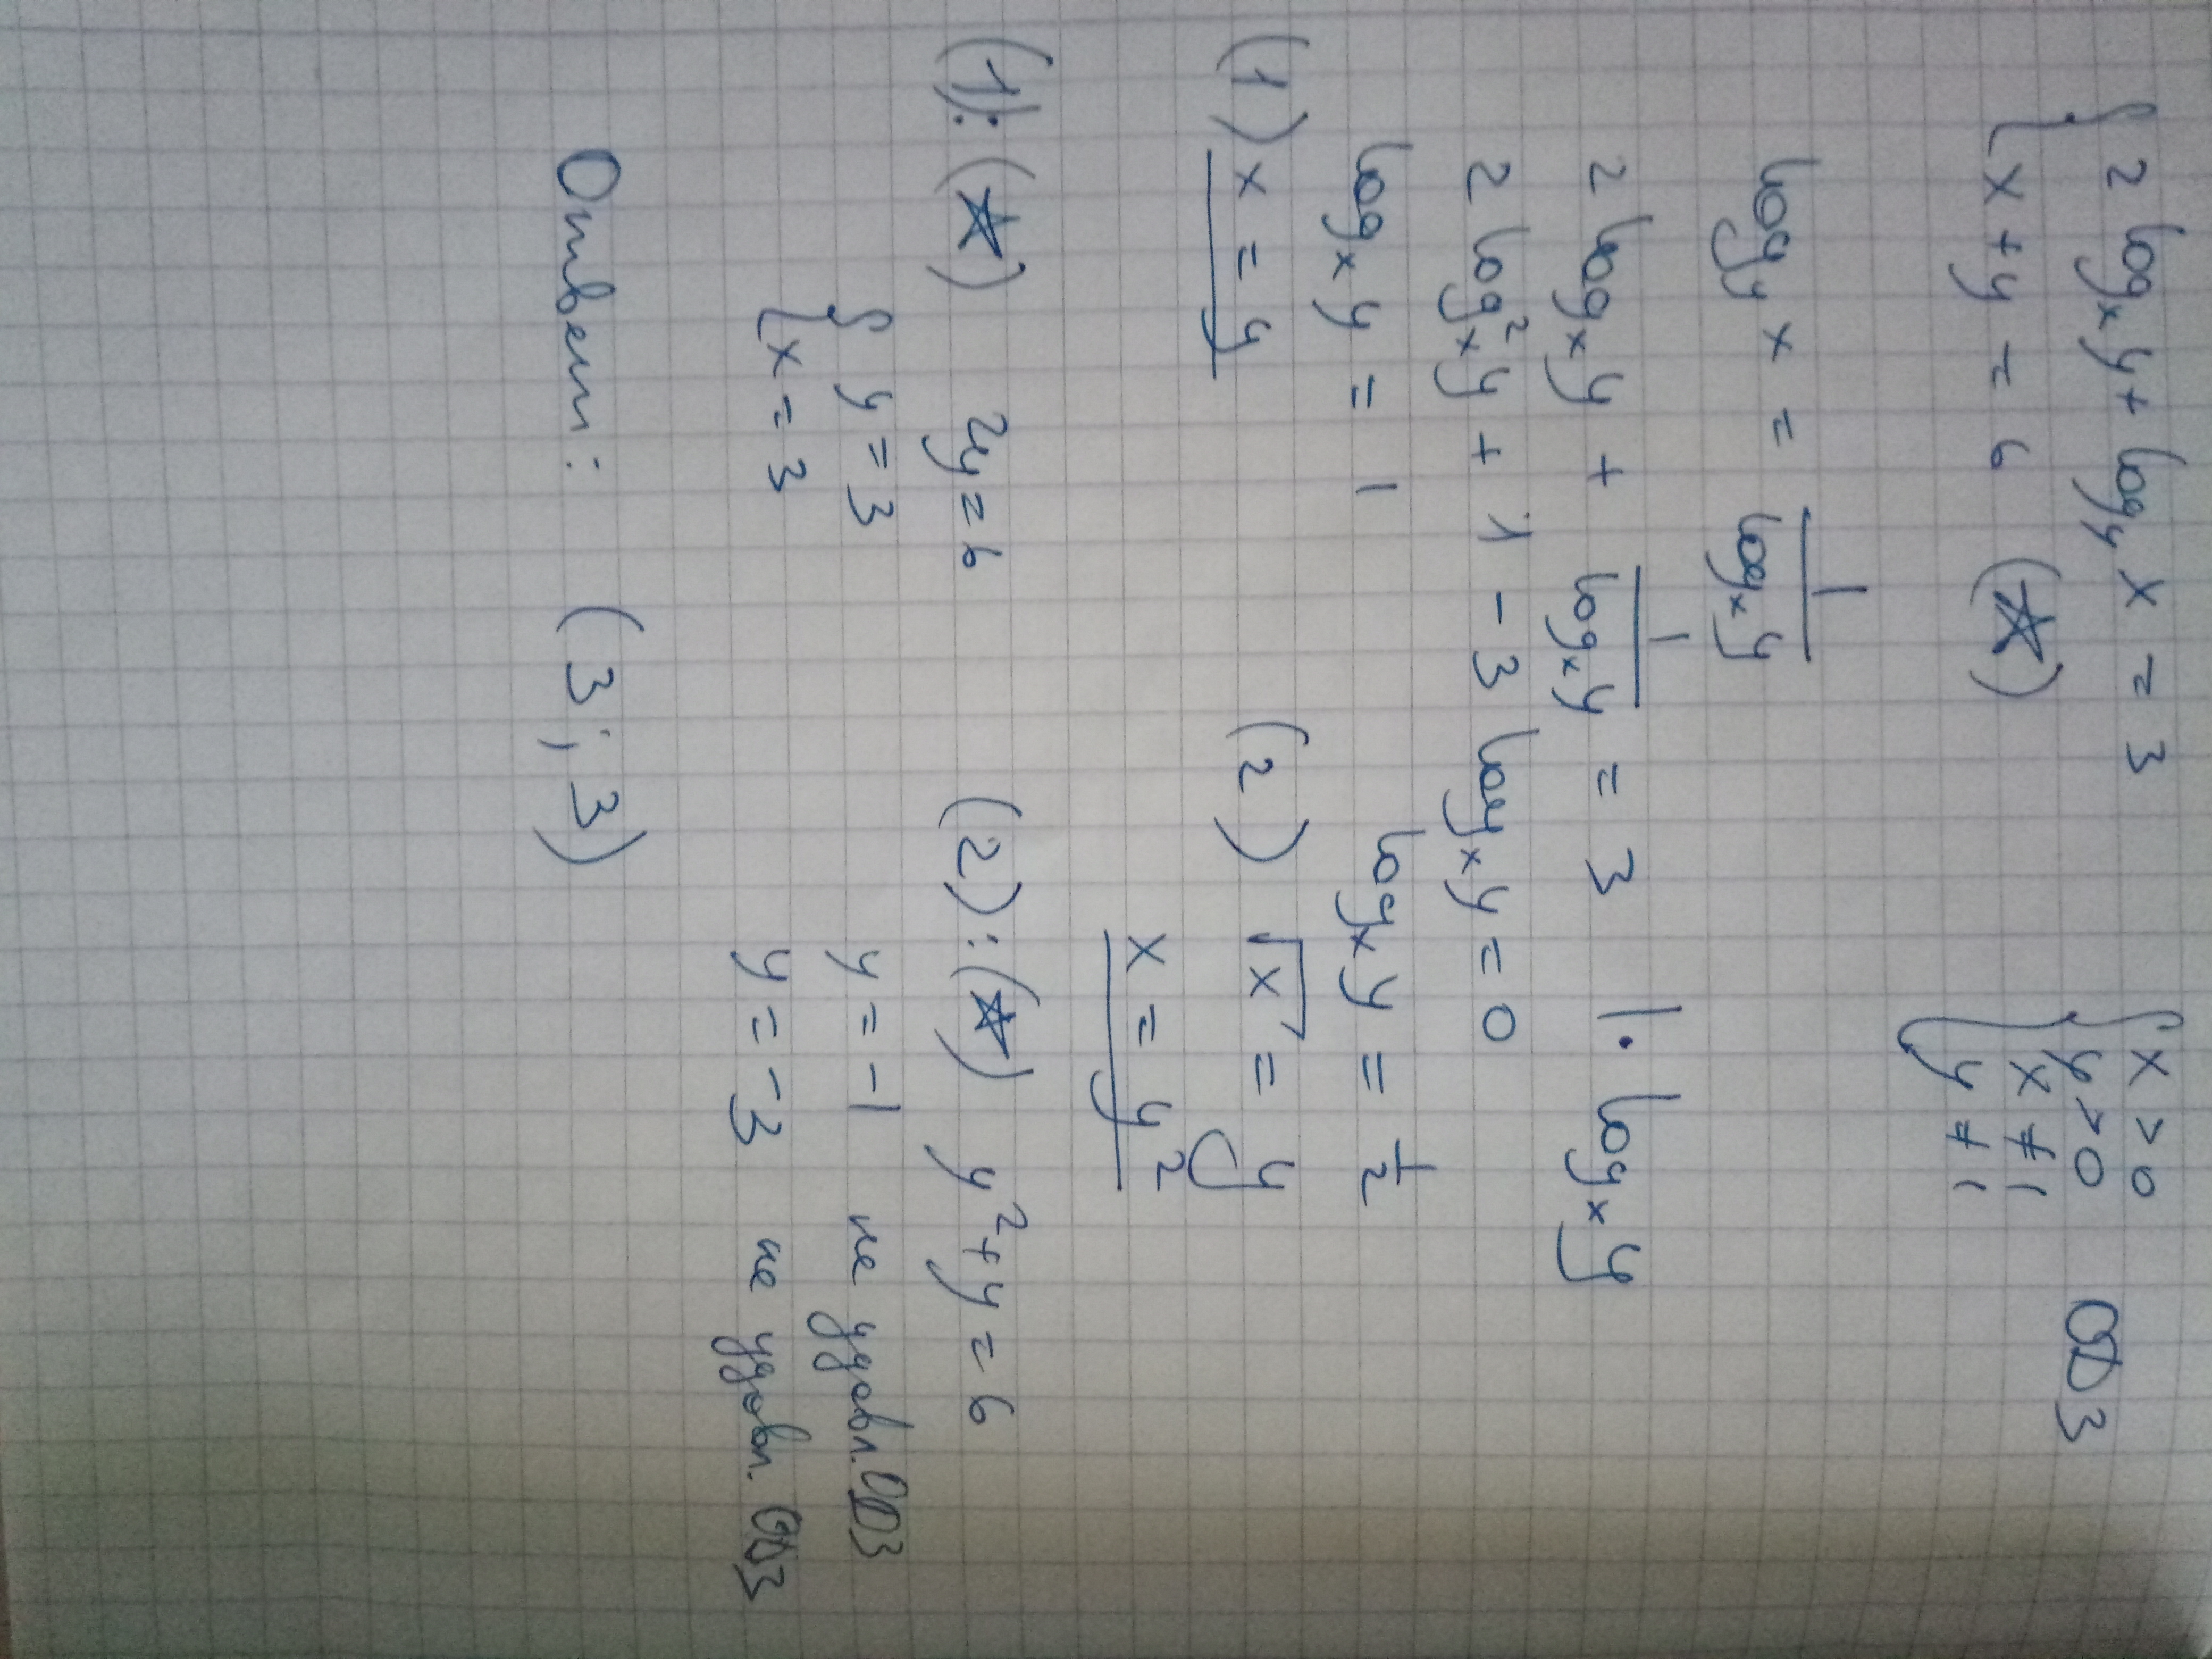 { 2 log_x y + log_y x = 3
{ x + y = 6 (☆)
{ x > 0
y > 0
x ≠ 1
y ≠ 1
ОДЗ
log_y x = 1 / log_x y
2 log_x y + 1 / log_x y = 3 | · log_x y
2 log²_x y + 1 - 3 log_x y = 0
log_x y = 1
log_x y = 1/2
(1) x = y
(2) √x = y
x = y²
(1): (☆) 2y = 6
{ y = 3
{ x = 3
(2): (☆) y² + y = 6
y = -1 не удовл. ОДЗ
y = -3 не удовл. ОДЗ
Ответ: (3; 3)